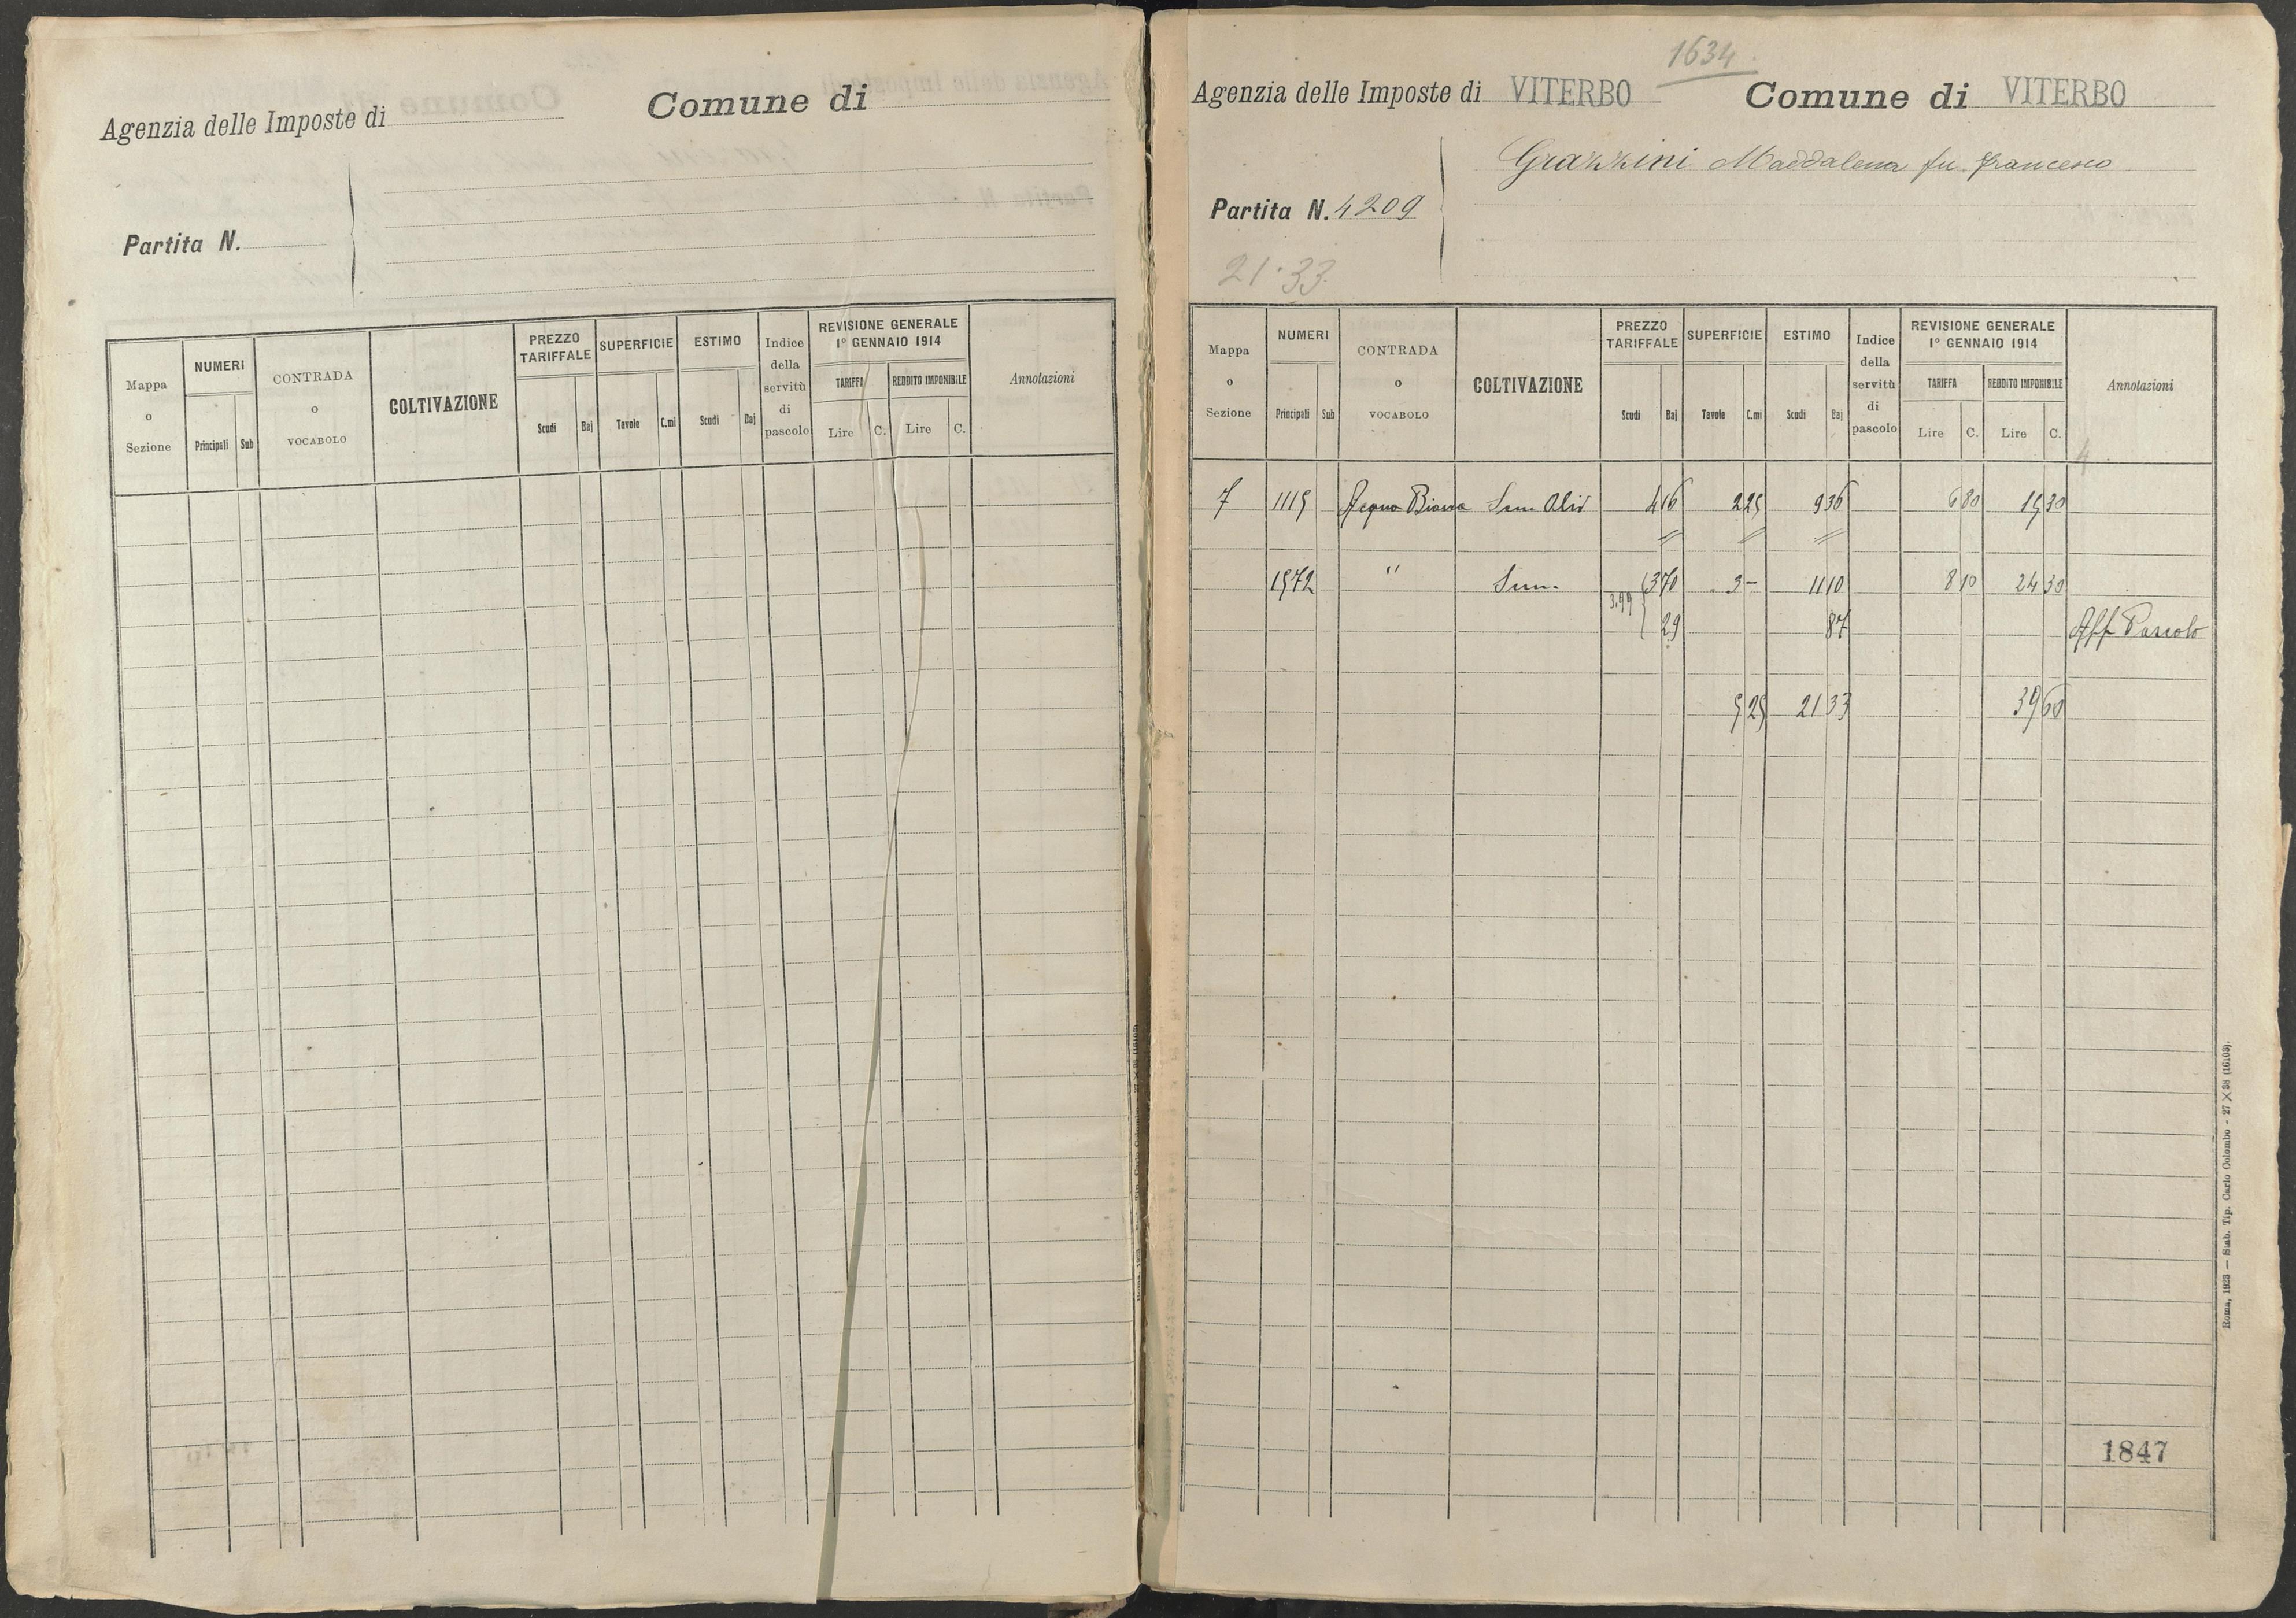 Agenzia delle Imposte di
Comune di
Partita N.
Mappa o Sezione
NUMERI
Principali Sub
CONTRADA o VOCABOLO
COLTIVAZIONE
PREZZO TARIFFALE
Scudi Baj
SUPERFICIE
Tavole C.mi
ESTIMO
Scudi Baj
Indice della servitù di pascolo
REVISIONE GENERALE
1° GENNAIO 1914
TARIFFA REDDITO IMPONIBILE
Lire C. Lire C.
Annotazioni
1634
Agenzia delle Imposte di VITERBO Comune di VITERBO
Grazzini Maddalena fu Francesco
Partita N. 4209
21.33
Mappa o Sezione
NUMERI
Principali Sub
CONTRADA o VOCABOLO
COLTIVAZIONE
PREZZO TARIFFALE
Scudi Baj
SUPERFICIE
Tavole C.mi
ESTIMO
Scudi Baj
Indice della servitù di pascolo
REVISIONE GENERALE
1° GENNAIO 1914
TARIFFA REDDITO IMPONIBILE
Lire C. Lire C.
Annotazioni
4
7 1115 Acqua Bianca Sem. Oliv 4 16 2 25 9 36 6 80 15 30
1572 " Sem. 3 70 3 - 11 10 8 10 24 30
3.99 29 87 Aff Pascolo
5 25 21 33 39 60
1847
Roma, 1923 — Stab. Tip. Carlo Colombo - 27 × 38 (16103).